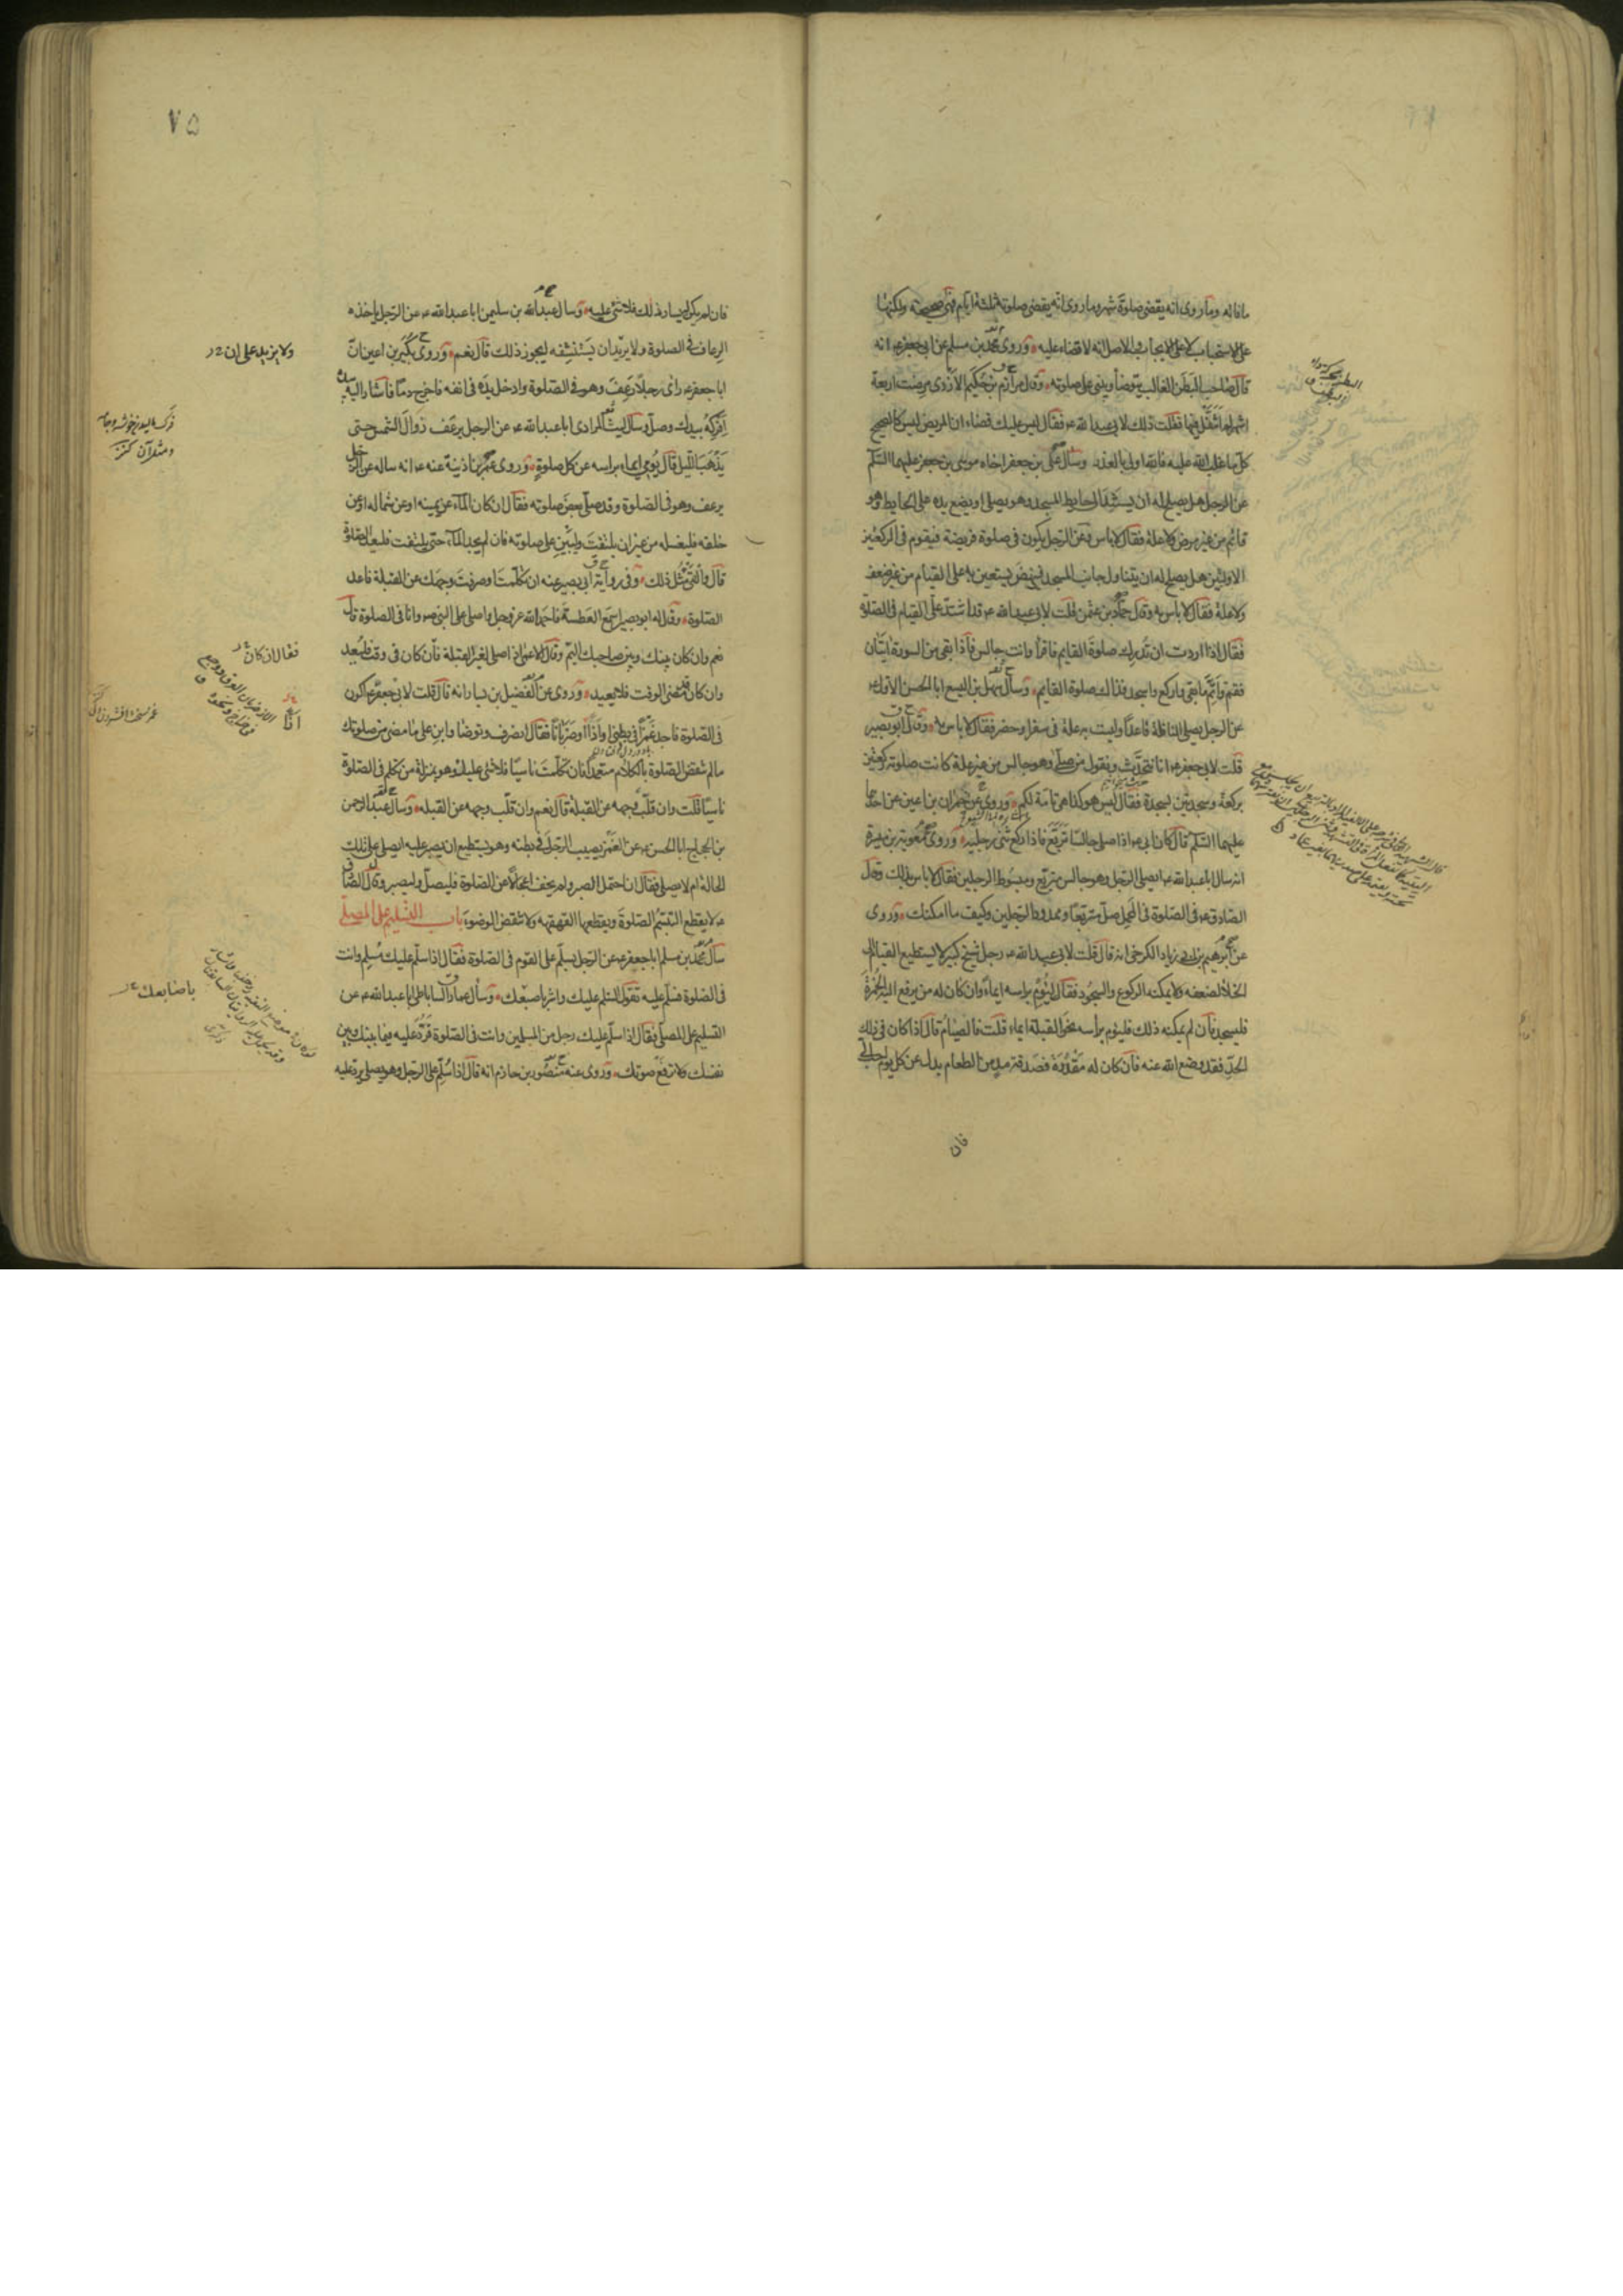 ما فاته وما روى انه يقضى صلوة شهر وما روى انه يقضى صلوة ثلثة ايام فهى صحيحة ولكنها
على الاستحباب لا على الايجاب والاصل انه لا قضاء عليه وروى محمد بن مسلم عن ابى جعفر ع انه
قال صاحب البطن الغالب يتوضأ ويبنى على صلوته وقال مرازم بن حكيم الازدى مرضت اربعة
اشهر لم اتنفل فيها فقلت ذلك لابى عبد الله ع فقال ليس عليك قضاء ان المريض ليس كالصحيح
كل ما غلب الله عليه فالله اولى بالعذر وسأل على بن جعفر اخاه موسى بن جعفر عليهما السلم
عن الرجل هل يصلح له ان يستند الى حايط المسجد وهو يصلى او يضع يده على الحايط وهو
قائم من غير مرض ولا علة فقال لا باس وعن الرجل يكون فى صلوة فريضة فيقوم فى الركعتين
الاوليين هل يصلح له ان يتناول جانب المسجد فينهض يستعين به على القيام من غير ضعف
ولا علة فقال لا باس به وقال حماد بن عثمن قلت لابى عبد الله ع قد اشتد على القيام فى الصلوة
فقال اذا اردت ان تدرك صلوة القايم فاقرأ وانت جالس فاذا بقى من السورة ايتان
فقم واتم ما بقى واركع واسجد فذاك صلوة القايم وسأل سهل بن اليسع ابا الحسن الاول ع
عن الرجل يصلى النافلة قاعدا وليست به علة فى سفر او حضر فقال لا باس به وقال ابو بصير
قلت لابى جعفر ع انا نتحدث ونقول من صلى وهو جالس من غير علة كانت صلوته ركعتين
بركعة وسجدتين بسجدة فقال ليس هو كذا هى تامة لكم وروى عن حمران بن اعين عن احدهما
عليهما السلم قال كان ابى ع اذا صلى جالسا تربع فاذا ركع ثنى رجليه وروى معوية بن ميسرة
انه سال ابا عبد الله ع ايصلى الرجل وهو جالس متربع ومبسوط الرجلين فقال لا باس بذلك وقال
الصادق ع فى الصلوة فى المحمل صل متربعا وممدود الرجلين وكيف ما امكنك وروى
عن ابرهيم بن ابى زياد الكرخى انه قال قلت لابى عبد الله ع رجل شيخ كبير لا يستطيع القيام الى
الخلا لضعفه ولا يمكنه الركوع والسجود فقال ليؤم براسه ايماء وان كان له من يرفع اليه الخمرة
فليسجد فان لم يمكنه ذلك فليؤم برأسه نحو القبلة ايماء قلت فالصيام قال اذا كان فى ذلك
الحد فقد وضع الله عنه فان كان له مقدرة فصدقة مد من الطعام بدل عن كل يوم احب الى
فان
٧٥
فان لم يكن له يسار ذلك فلا شئ عليه وسال عبد الله بن سليمن ابا عبد الله ع عن الرجل ياخذه
الرعاف فى الصلوة ولا يريد ان يستنشفه ايجوز ذلك قال نعم وروى بكير بن اعين ان
ولا يزيد على ان
ابا جعفر ع رأى رجلا رعف وهو فى الصلوة وادخل يده فى انفه فاخرج دما فاشار اليه بيده
افركه بيدك وصل وسال ليث المرادى ابا عبد الله ع عن الرجل يرعف زوال الشمس حتى
يذهب الليل قال يومى ايماء براسه عن كل صلوة وروى عمر بن اذينة عنه ع انه ساله عن الرجل
يرعف وهو فى الصلوة وقد صلى بعض صلوته فقال ان كان الماء عن يمينه او عن شماله او عن
خلفه فليغسله من غير ان يلتفت وليبن على صلوته فان لم يجد الماء حتى يلتفت فليعد الصلوة
قال والقئ مثل ذلك وفى رواية ابى بصير عنه ان تكلمت او صرفت وجهك عن القبلة فاعد
الصلوة وقال له ابو بصير اسمع العطسة فاحمد الله عز وجل واصلى على النبى ص وانا فى الصلوة قال
نعم وان كان بينك وبين صاحبك اليم وقال الاعمى اذا صلى لغير القبلة فان كان فى وقت فليعد
فقال ان كان
وان كان قد مضى الوقت فلا يعيد وروى عن الفضيل بن يسار انه قال قلت لابى جعفر ع اكون
فى الصلوة فاجد غمزا فى بطنى واذا او ضربانا فقال انصرف وتوضا وابن على ما مضى من صلوتك
مالم تنقض الصلوة بالكلام متعمدا فان تكلمت ناسيا فلا شئ عليك وهو بمنزلة من تكلم فى الصلوة
ناسيا قلت وان قلب وجهه عن القبلة قال نعم وان قلب وجهه عن القبلة وسال عبد الرحمن
بن الحجاج ابا الحسن ع عن الغمز يصيب الرجل فى بطنه وهو يستطيع ان يصبر عليه ايصلى على تلك
الحالة ام لا يصلى فقال ان احتمل الصبر ولم يخف اعجالا عن الصلوة فليصل وليصبر وقال الصادق
ع لا يقطع التبسم الصلوة ويقطعها القهقهة ولا تنقض الوضوء باب التسليم على المصلى
سأل محمد بن مسلم ابا جعفر ع عن الرجل يسلم على القوم فى الصلوة فقال اذا سلم عليك مسلم وانت
فى الصلوة فسلم عليه تقول السلم عليك واشر باصبعك وسأل عمار الساباطى ابا عبد الله ع عن
باصابعك
التسليم على المصلى فقال اذا سلم عليك رجل من المسلمين وانت فى الصلوة فرد عليه فيما بينك وبين
نفسك ولا ترفع صوتك وروى عنه منصور بن حازم انه قال اذا سلم على الرجل وهو يصلى يرد عليه